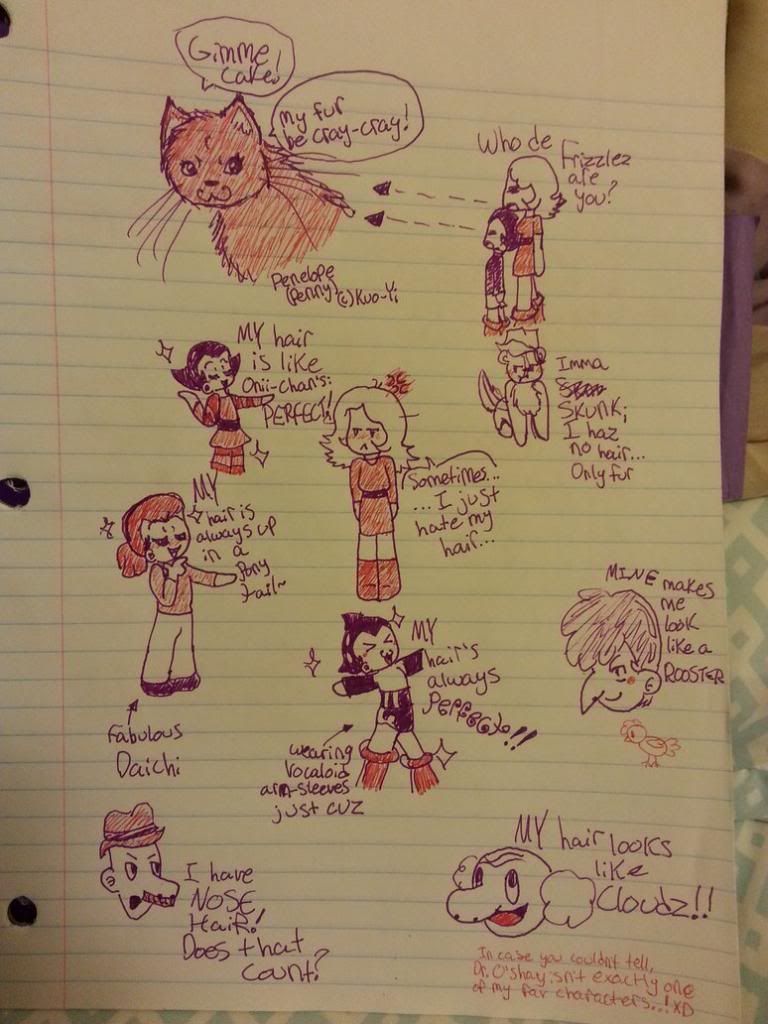 Gimme
cake!
My fur
be cray-cray!
Penelope
(Penny) (c) Kuo-Yi
Who de
Frizzlez
are
you?
MY hair
is like
Onii-chan's:
PERFECT!
Imma
SKUNK;
I haz
no hair...
Only fur
Sometimes...
... I just
hate my
hair...
MY
hair is
always up
in a
Pony
tail~
Fabulous
Daichi
MY
hair's
always
PERFECT!!
wearing
Vocaloid
arm-sleeves
just cuz
MINE makes
me
look
like a
ROOSTER
I have
NOSE
Hair!
Does that
count?
MY hair looks
like
Cloudz!!
In case you couldn't tell,
Dr. O'shay isn't exactly one
of my fav characters...! XD